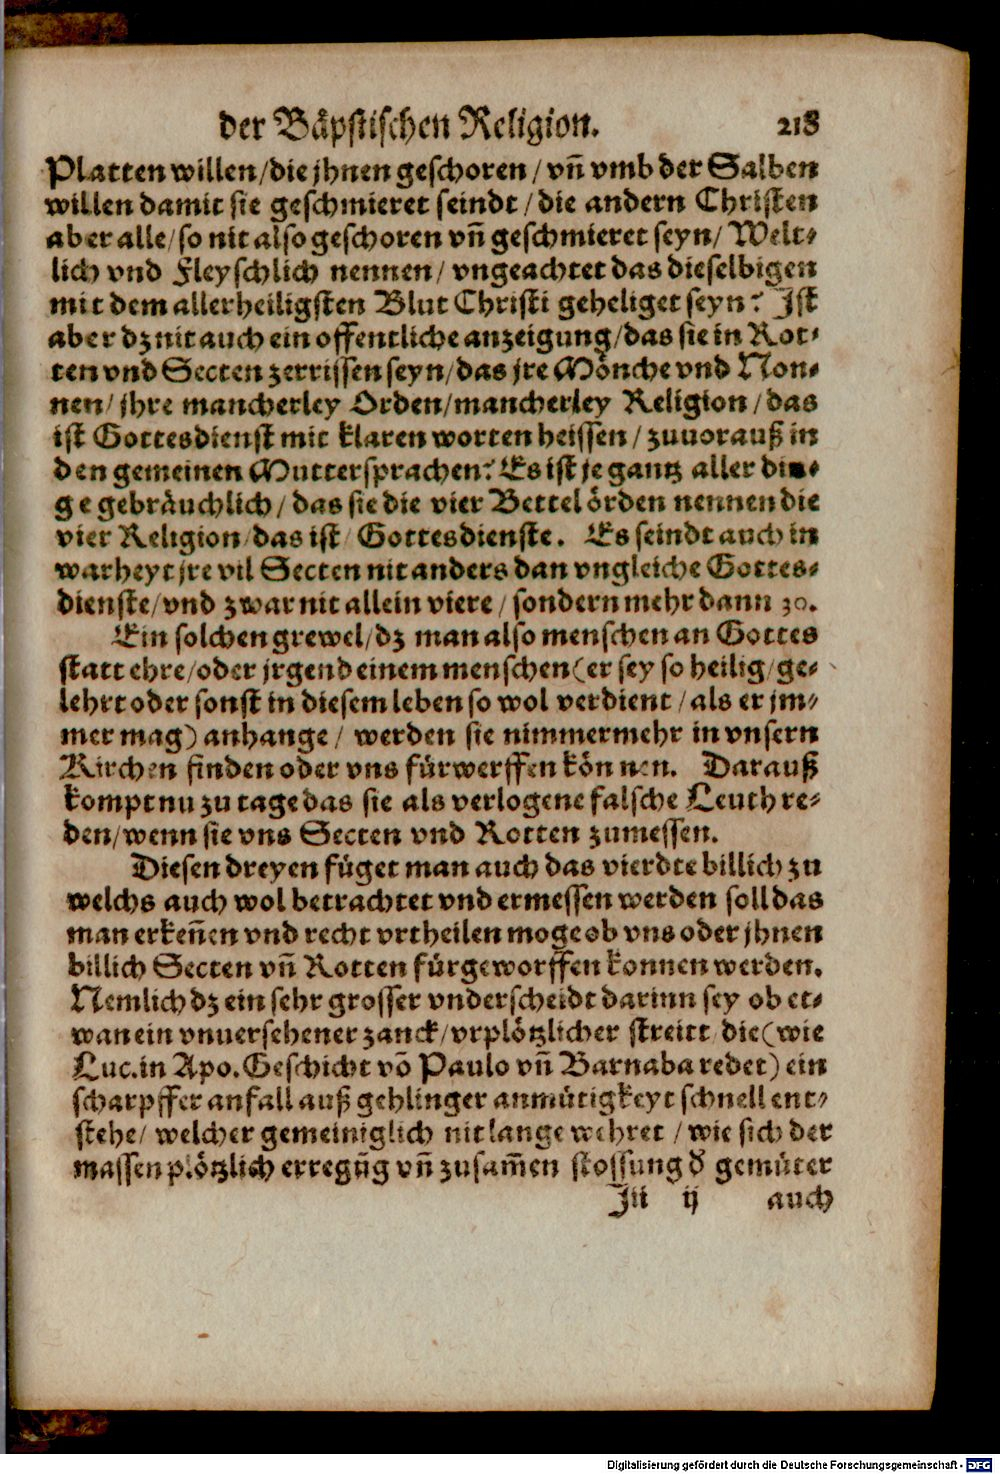 der Bäpstischen Religion. 218
Platten willen/die jhnen geschoren/vñ vmb der Salben
willen damit sie geschmieret seindt/die andern Christen
aber alle/so nit also geschoren vñ geschmieret seyn/Welt-
lich vnd Fleyschlich nennen/vngeachtet das dieselbigen
mit dem allerheiligsten Blut Christi geheliget seyn? Ist
aber dz nit auch ein offentliche anzeigung/das sie in Rot-
ten vnd Secten zerrissen seyn/das jre Mönche vnd Non-
nen/jhre mancherley Orden/mancherley Religion/das
ist Gottesdienst mit klaren worten heissen/zuuorauß in
den gemeinen Muttersprachen? Es ist je gantz aller din-
ge gebräuchlich/das sie die vier Bettel örden nennen die
vier Religion/das ist/Gottesdienste. Es seindt auch in
warheyt jre vil Secten nit anders dan vngleiche Gottes-
dienste/vnd zwar nit allein viere/sondern mehr dann 30.
Ein solchen grewel/dz man also menschen an Gottes
statt ehre/oder jrgend einem menschen(er sey so heilig/ge-
lehrt oder sonst in diesem leben so wol verdient/als er jm-
mer mag) anhange/werden sie nimmermehr in vnsern
Kirchen finden oder vns fürwerffen können. Darauß
kompt nu zu tage das sie als verlogene falsche Leuth re-
den/wenn sie vns Secten vnd Rotten zumessen.
Diesen dreyen füget man auch das vierdte billich zu
welchs auch wol betrachtet vnd ermessen werden soll das
man erkeñen vnd recht vrtheilen moge ob vns oder jhnen
billich Secten vñ Rotten fürgeworffen konnen werden.
Nemlich dz ein sehr grosser vnderscheidt darinn sey ob et-
wan ein vnuersehener zanck/vrplötzlicher streitt/die(wie
Luc.in Apo.Geschicht võ Paulo vñ Barnaba redet) ein
scharpffer anfall auß gehlinger anmütigkeyt schnell ent-
stehe/welcher gemeiniglich nit lange wehret/wie sich der
massen plötzlich erregũg vñ zusam̃en stossung d̕ gemüter
Iii ij auch
Digitalisierung gefördert durch die Deutsche Forschungsgemeinschaft - DFG